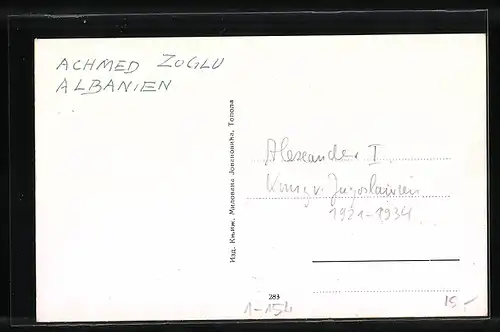 ACHMED ZOGLU
ALBANIEN
Изд. Књиж. Милована Јовановића, Топола
Alexander I.
König v. Jugoslawien
1921-1934
283
1-154
15,-